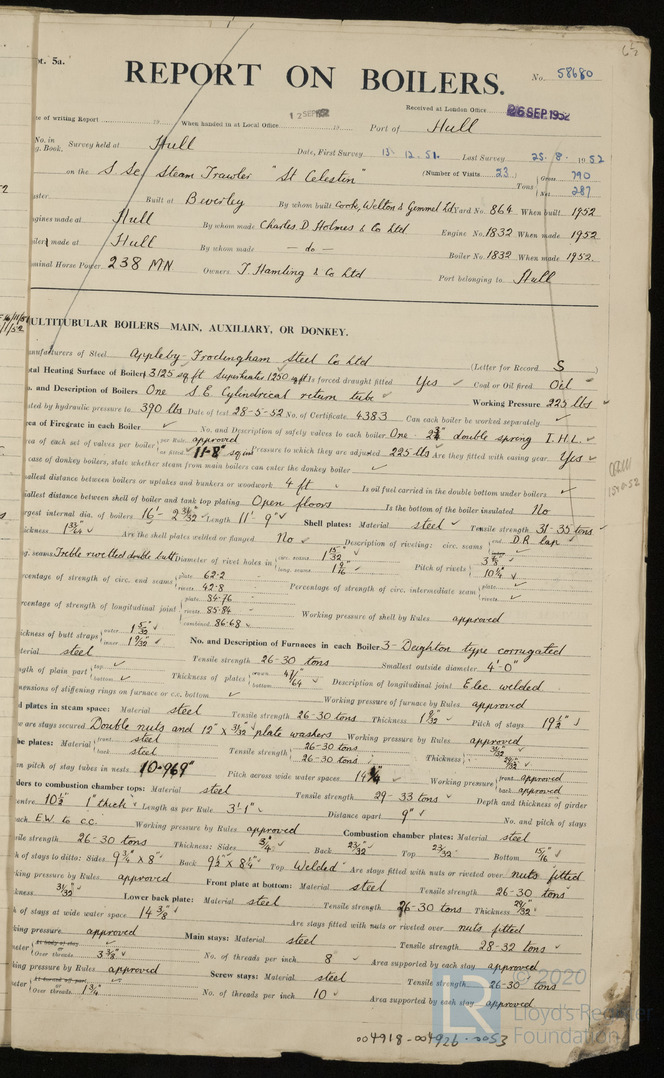 65
pt. 5a.
REPORT ON BOILERS.
No. 58680
Received at London Office 26 SEP 1952
te of writing Report 19 When handed in at Local Office 12 SEP 1952 19 Port of Hull
No. in Survey held at Hull Date, First Survey 13. 12. 51. Last Survey 25. 8. 1952
g. Book.
on the S Sc Steam Trawler "St Celestin" (Number of Visits 23) Tons Gross 790 Net 287
Built at Beverley By whom built Cook, Welton & Gemmell Ltd Yard No. 864 When built 1952
ngines made at Hull By whom made Charles D. Holmes & Co Ltd Engine No. 1832 When made 1952
oilers made at Hull By whom made — do — Boiler No. 1832 When made 1952.
ominal Horse Power 238 MN Owners T. Hamling & Co Ltd Port belonging to Hull
ULTITUBULAR BOILERS MAIN, AUXILIARY, OR DONKEY.
anufacturers of Steel Appleby-Frodingham Steel Co Ltd (Letter for Record S)
tal Heating Surface of Boilers 3125 sq. ft Superheater 1250 sq ft Is forced draught fitted Yes Coal or Oil fired Oil
o. and Description of Boilers One S.E. Cylindrical return tube Working Pressure 225 lbs
sted by hydraulic pressure to 390 lbs Date of test 28-5-52 No. of Certificate 4383 Can each boiler be worked separately
rea of Firegrate in each Boiler No. and Description of safety valves to each boiler One double spring I.H.L.
ea of each set of valves per boiler per Rule approved as fitted 11.8" sq ins Pressure to which they are adjusted 225 lbs Are they fitted with easing gear Yes
case of donkey boilers, state whether steam from main boilers can enter the donkey boiler
mallest distance between boilers or uptakes and bunkers or woodwork 4 ft Is oil fuel carried in the double bottom under boilers
mallest distance between shell of boiler and tank top plating Open floors Is the bottom of the boiler insulated No
rgest internal dia. of boilers 16' - 2 31/32" Length 11' 9" Shell plates: Material steel Tensile strength 31-35 tons
ickness 1 33/64" Are the shell plates welded or flanged No Description of riveting: circ. seams end D.R. lap
g. seams Treble rivetted double butt Diameter of rivet holes in circ. seams 1 15/32" long. seams 1 9/16" Pitch of rivets 3 7/8" 10 1/4"
rcentage of strength of circ. end seams plate 62.2 rivets 42.8 Percentage of strength of circ. intermediate seam plate rivets
rcentage of strength of longitudinal joint plate 84.76 rivets 85.84 combined 86.68 Working pressure of shell by Rules approved
ickness of butt straps outer 1 5/32" inner 1 9/32" No. and Description of Furnaces in each Boiler 3-Deighton type corrugated
terial steel Tensile strength 26-30 tons Smallest outside diameter 4'-0"
ngth of plain part top bottom Thickness of plates crown bottom 47/64" Description of longitudinal joint Elec. welded
mensions of stiffening rings on furnace or c.c. bottom Working pressure of furnace by Rules approved
d plates in steam space: Material steel Tensile strength 26-30 tons Thickness 1 9/32" Pitch of stays 19 1/2"
w are stays secured Double nuts and 12" x 3/32" plate washers Working pressure by Rules approved
be plates: Material front steel back steel Tensile strength 26-30 tons 26-30 tons Thickness 31/32" 29/32"
an pitch of stay tubes in nests 10.969" Pitch across wide water spaces 14 1/4" Working pressure front approved back approved
ders to combustion chamber tops: Material steel Tensile strength 29-33 tons Depth and thickness of girder
entre 10 1/2" 1" thick Length as per Rule 3'-1" Distance apart 9" No. and pitch of stays
ach E.W. to c.c. Working pressure by Rules approved Combustion chamber plates: Material steel
sile strength 26-30 tons Thickness: Sides 3/4" Back 23/32" Top 23/32" Bottom 15/16"
h of stays to ditto: Sides 9 3/4" x 8" Back 9 1/2" x 8 1/4" Top Welded Are stays fitted with nuts or riveted over nuts fitted
king pressure by Rules approved Front plate at bottom: Material steel Tensile strength 26-30 tons
kness 31/32" Lower back plate: Material steel Tensile strength 26-30 tons Thickness 29/32"
h of stays at wide water space 14 3/8" Are stays fitted with nuts or riveted over nuts fitted
king pressure approved Main stays: Material steel Tensile strength 28-32 tons
meter At body of stay or Over threads 3 3/8" No. of threads per inch 8 Area supported by each stay approved
king pressure by Rules approved Screw stays: Material steel Tensile strength 26-30 tons
meter At turned off part or Over threads 1 3/4" No. of threads per inch 10 Area supported by each stay approved
004918-004926-0053
LR © 2020
Lloyd's Register
Foundation